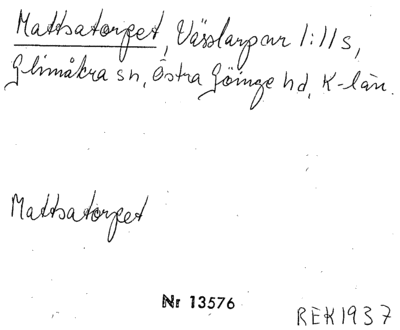 Mattsatorpet, Vässlarpar 1:11 s,
Glimåkra sn, Östra Göinge hd, K-län.
Mattsatorpet
Nr 13576
REK 1937